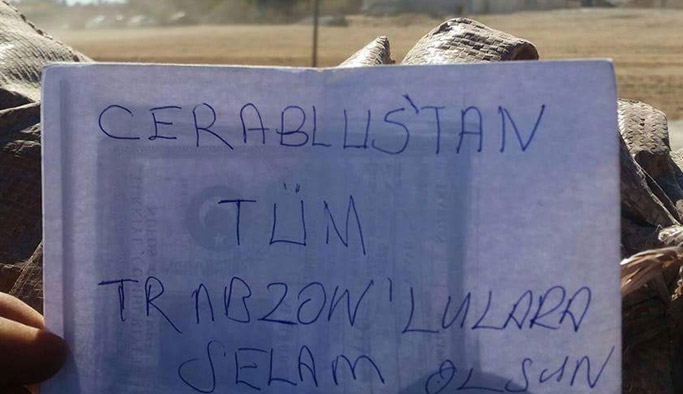 CERABLUS'TAN
TÜM
TRABZON'LULARA
SELAM OLSUN